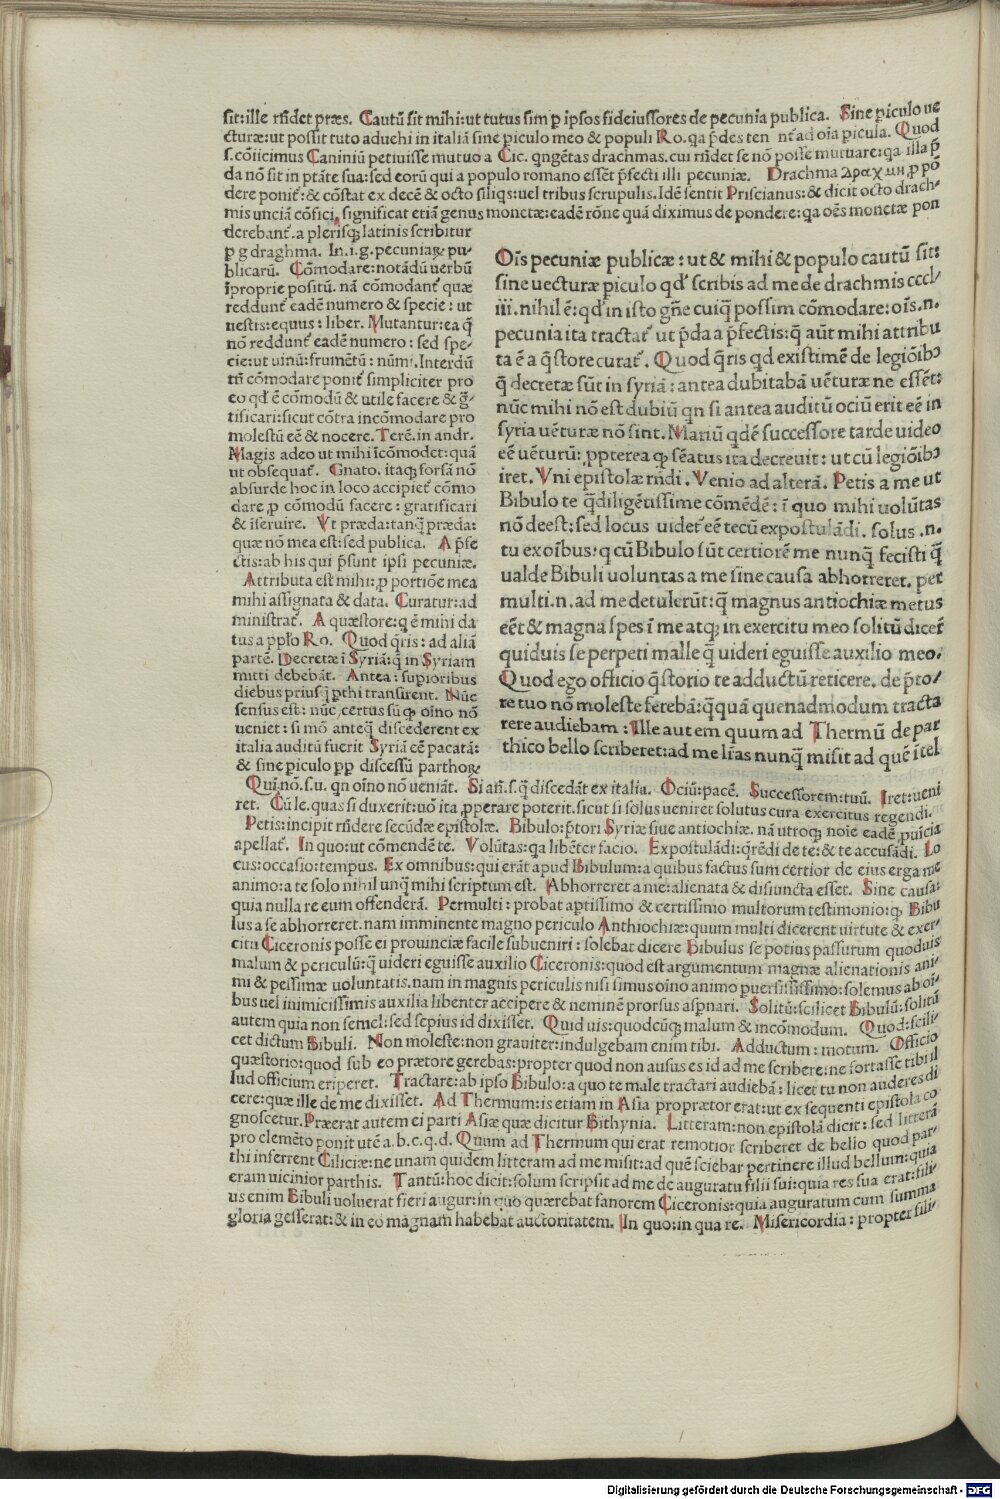 sit:ille rñdet præs. Cautũ sit mihi:ut tutus sim ꝑ ipsos fideiussores de pecunia publica. Sine ꝑiculo ue
cturæ:ut possit tuto aduehi in italiã sine ꝑiculo meo & populi Ro. qa p̃des ten nt̃ ad oĩa ꝑicula. Quod
s. cõiicimus Caniniũ petiuisse mutuo a Cic. qngẽtas drachmas. cui rñdet se nõ posse mutuare: qa illa p̃
da nõ sit in ptãte sua: sed eorũ qui a populo romano essẽt p̃fecti illi pecuniæ. Drachma δραχμη ꝓ põ
dere ponit̃: & cõstat ex decẽ & octo siliqs: uel tribus scrupulis. Idẽ sentit Priscianus: & dicit octo drach-
mis unciã cõfici, significat etiã genus monetæ: eadẽ rõne quã diximus de pondere: qa oẽs monetæ pon
derebant̃. a plerisqꝫ latinis scribitur
ꝑ g draghma. In. i. g. pecuniaꝝ pu-
blicarũ. Cõmodare: notãdũ uerbũ
ĩproprie positũ. nã cõmodant̃ quæ
reddunt̃ eadẽ numero & specie: ut
uestis: equus: liber. Mutantur: ea q̃
nõ reddunt̃ eadẽ numero: sed spe-
cie: ut uinũ: frumẽtũ: nũmi. Interdũ
tñ cõmodare ponit̃ simpliciter pro
eo qd̓ ẽ cõmodũ & utile facere & g̃-
tificari: sicut cõtra incõmodare pro
molestũ eẽ & nocere. Terẽ. in andr.
Magis adeo ut mihi ĩcõmodet: quã
ut obsequat̃. Gnato. itaqꝫ forsã nõ
absurde hoc in loco accipiet̃ cõmo
dare ꝓ cõmodũ facere: gratificari
& ĩseruire. Vt præda: tanq̃ præda:
quæ nõ mea est: sed publica. A p̃fe
ctis: ab his qui p̃sunt ipsi pecuniæ.
Attributa est mihi: ꝓ portiõe mea
mihi assignata & data. Curatur: ad
ministrat̃. A quæstore: q ẽ mihi da
tus a pplo Ro. Quod q̃ris: ad aliã
partẽ. Decretæ ĩ Syriã: q̃ in Syriam
mitti debebãt. Antea: supioribus
diebus priusq̃ pthi transirent. Nũc
sensus est: nũc certus sũ qꝫ oĩno nõ
ueniet: si mõ anteq̃ discederent ex
italia auditũ fuerit Syriã eẽ pacatã:
& sine ꝑiculo ꝓp discessũ parthoꝝ
Oĩs pecuniæ publicæ: ut & mihi & populo cautũ sit:
sine uecturæ ꝑiculo qd̓ scribis ad me de drachmis cccl-
iii. nihil ẽ: qd̓ in isto gñe cuiq̃ possim cõmodare: oĩs. n.
pecunia ita tractat̃ ut p̃da a p̃fectis: q̃ aũt mihi attribu
ta ẽ a q̃store curat̃. Quod q̃ris qd existimẽ de legiõibꝰ
q̃ decretæ sũt in syriã: antea dubitabã uẽturæ ne essẽt:
nũc mihi nõ est dubiũ qn si antea auditũ ociũ erit eẽ in
syria uẽturæ nõ sint. Mariũ qdẽ successore tarde uideo
eẽ uẽturũ: ꝓpterea qꝫ sẽatus ita decreuit: ut cũ legiõibꝰ
iret. Vni epistolæ rñdi. Venio ad alterã. Petis a me ut
Bibulo te q̃diligẽtissime cõmẽdẽ: ĩ quo mihi uolũtas
nõ deest: sed locus uidet̃ eẽ tecũ expostulãdi. solus .n.
tu ex oĩbus: q cũ Bibulo sũt certiorẽ me nunq̃ fecisti q̃
ualde Bibuli uoluntas a me sine causa abhorreret. per
multi. n. ad me detulerũt: q̃ magnus antiochiæ metus
eẽt & magna spes ĩ me atqꝫ in exercitu meo solitũ dicer̃
quiduis se perpeti malle q̃ uideri eguisse auxilio meo.
Quod ego officio q̃storio te adductũ reticere. de p̃to-
re tuo nõ moleste ferebã: q̃quã quenadmodum tracta
rere audiebam: Ille autem quum ad Thermũ de par
thico bello scriberet: ad me lr̃as nunq̃ misit ad quẽ ĩtel
Qui. nõ. s. u. qn oĩno nõ ueniãt. Si añ. s. q̃ discedãt ex italia. Ociũ: pacẽ. Successorem: tuũ. Iret: ueni
ret. Cũ le. quas si duxerit: uõ ita ꝓperare poterit. sicut si solus ueniret solutus cura exercitus regendi.
Petis: incipit rñdere secũdæ epistolæ. Bibulo: p̃tori Syriæ siue antiochiæ. nã utroqꝫ noĩe eadẽ ꝓuĩcia
apellat̃. In quo: ut cõmendẽ te. Volũtas: qa libẽter facio. Expostulãdi: q̃rẽdi de te: & te accusãdi. Lo
cus: occasio: tempus. Ex omnibus: qui erãt apud Bibulum: a quibus factus sum certior de eius erga me
animo: a te solo nihil unq̃ mihi scriptum est. Abhorreret a me: alienata & disiuncta esset. Sine causa:
quia nulla re eum offenderã. Permulti: probat aptissimo & certissimo multorum testimonio: qꝫ Bibu
lus a se abhorreret. nam imminente magno periculo Anthiochiæ: quum multi dicerent uirtute & exer-
citu Ciceronis posse ei prouinciæ facile subueniri: solebat dicere Bibulus se potius passurum quoduis
malum & periculũ: q̃ uideri eguisse auxilio Ciceronis: quod est argumentum magnæ alienationis ani-
mi & pessimæ uoluntatis. nam in magnis periculis nisi simus oĩno animo puersissimo: solemus ab oĩ-
bus uel inimicissimis auxilia libenter accipere & neminẽ prorsus aspnari. Solitũ: scilicet Bibulũ: solitũ
autem quia non semel: sed sepius id dixisset. Quid uis: quodcũqꝫ malum & incõmodum. Quod: scili-
cet dictum Bibuli. Non moleste: non grauiter: indulgebam enim tibi. Adductum: motum. Officio
quæstorio: quod sub eo prætore gerebas: propter quod non ausus es id ad me scribere: ne fortasse tibi il
lud officium eriperet. Tractare: ab ipso Bibulo: a quo te male tractari audiebã: licet tu non auderes di
cere: quæ ille de me dixisset. Ad Thermum: is etiam in Asia propræetor erat: ut ex sequenti epistola co
gnoscetur. Præerat autem ei parti Asiæ quæ dicitur Bithynia. Litteram: non epistolã dicit: sed litterã
pro clemẽto ponit utẽ a. b. c. q. d. Quum ad Thermum qui erat remotior scriberet de bello quod par-
thi inferrent Ciliciæ: ne unam quidem litteram ad me misit: ad quẽ sciebar pertinere illud bellum: quia
eram uicinior parthis. Tantũ: hoc dicit: solum scripsit ad me de auguratu filii sui: quia res sua erat: fili-
us enim Bibuli uoluerat fieri augur: in quo quærebat fanorem Ciceronis: quia auguratum cum summa
gloria gesserat: & in eo magnam habebat auctoritatem. In quo: in qua re. Misericordia: propter fili-
Digitalisierung gefördert durch die Deutsche Forschungsgemeinschaft - DFG